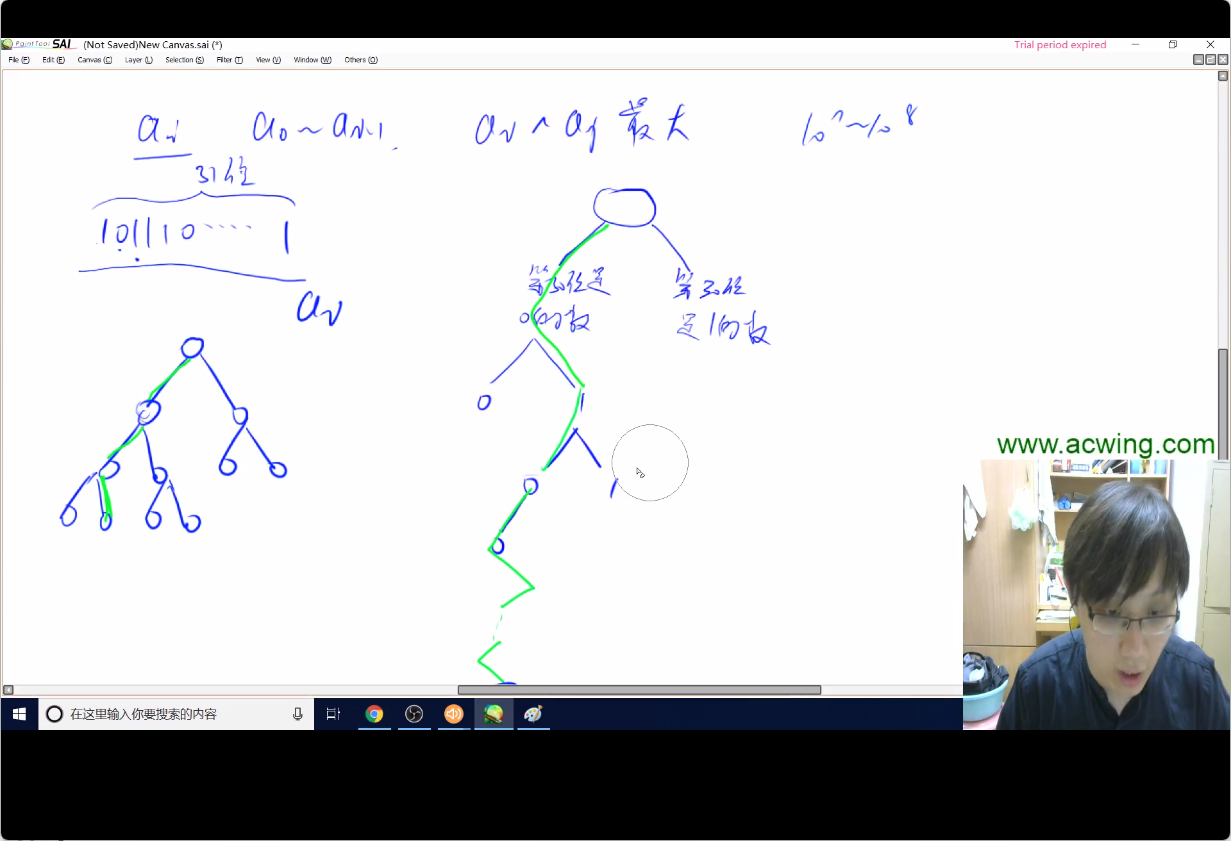 PaintTool SAI (Not Saved)New Canvas.sai (*) Trial period expired
File (F) Edit (E) Canvas (C) Layer (L) Selection (S) Filter (T) View (V) Window (W) Others (O)
ai a0 ~ ai-1 ai ^ aj 最大 10^7 ~ 10^8
31位
101110 ···· 1
ai
第30位是
0的数
第30位
是1的数
0 1
0 1
0
www.acwing.com
在这里输入你要搜索的内容